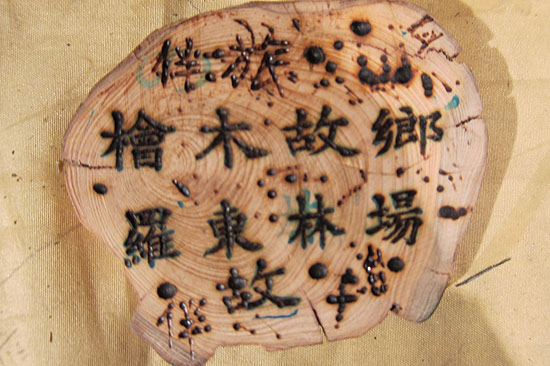 山
檜木故鄉
羅東林場
故